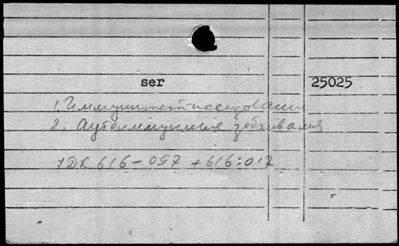 ser 25025
1. Иммунитет-исследования
2. Аутоиммунные заболевания
УДК 616-097 + 616:012